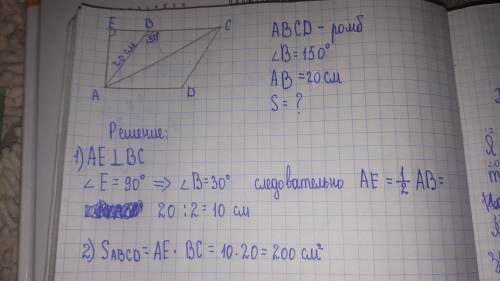 E B C
20 см 150°
A D
ABCD - ромб
∠B = 150°
AB = 20 см
S = ?
Решение:
1) AE ⊥ BC
∠E = 90° => ∠B = 30° следовательно AE = 1/2 AB =
20 : 2 = 10 см
2) SABCD = AE · BC = 10 · 20 = 200 см²